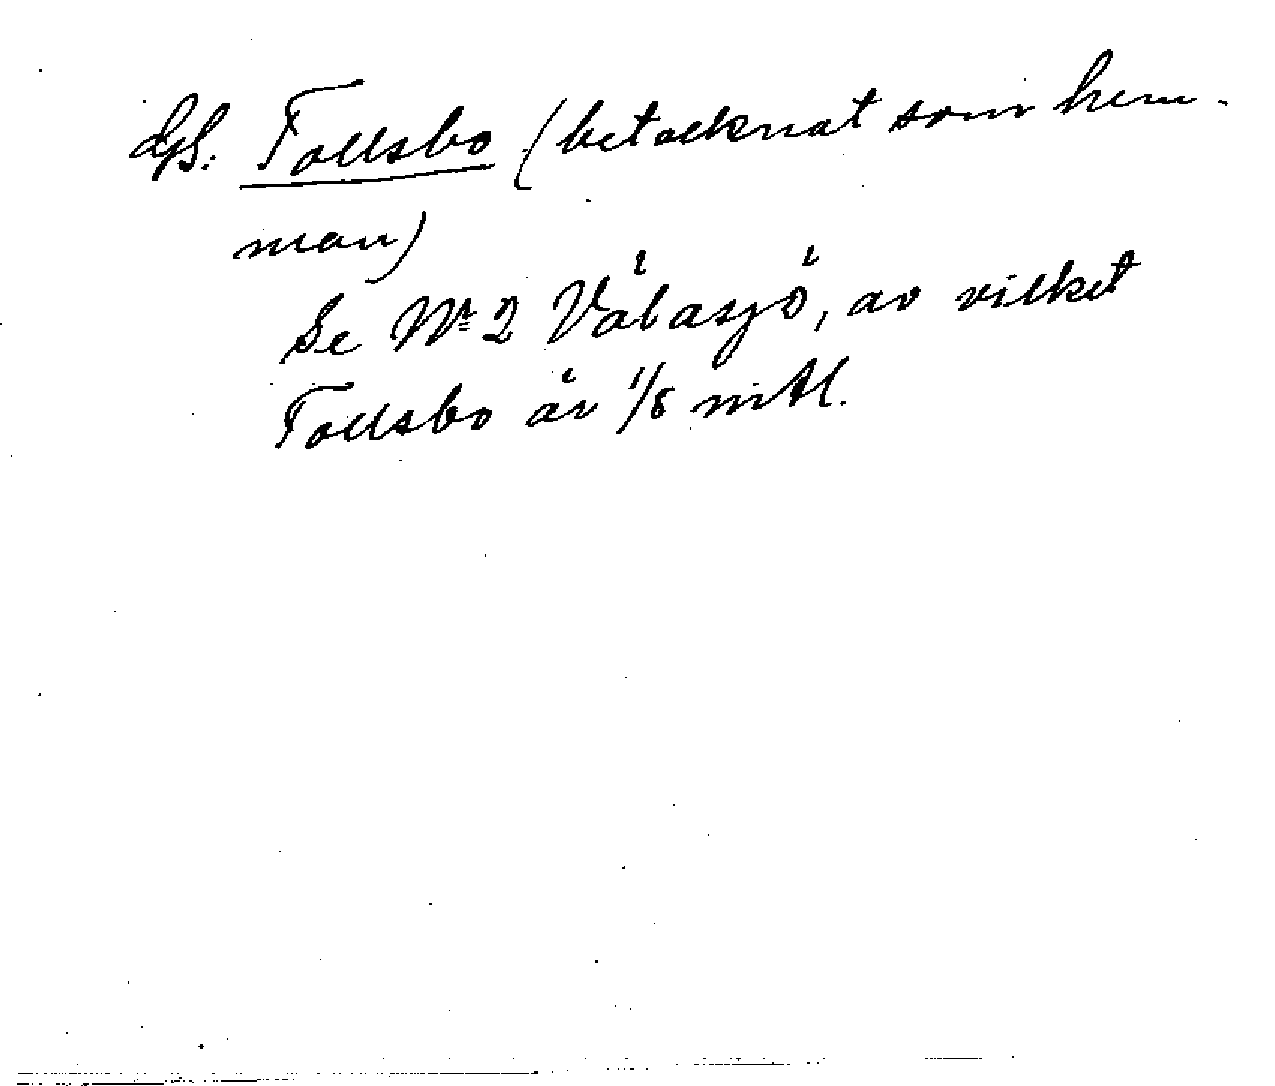 lgh. Tollsbo (betecknat som hem-
man)
Se Nr 2 Välasjö, av vilket
Tollsbo är 1/8 mtl.